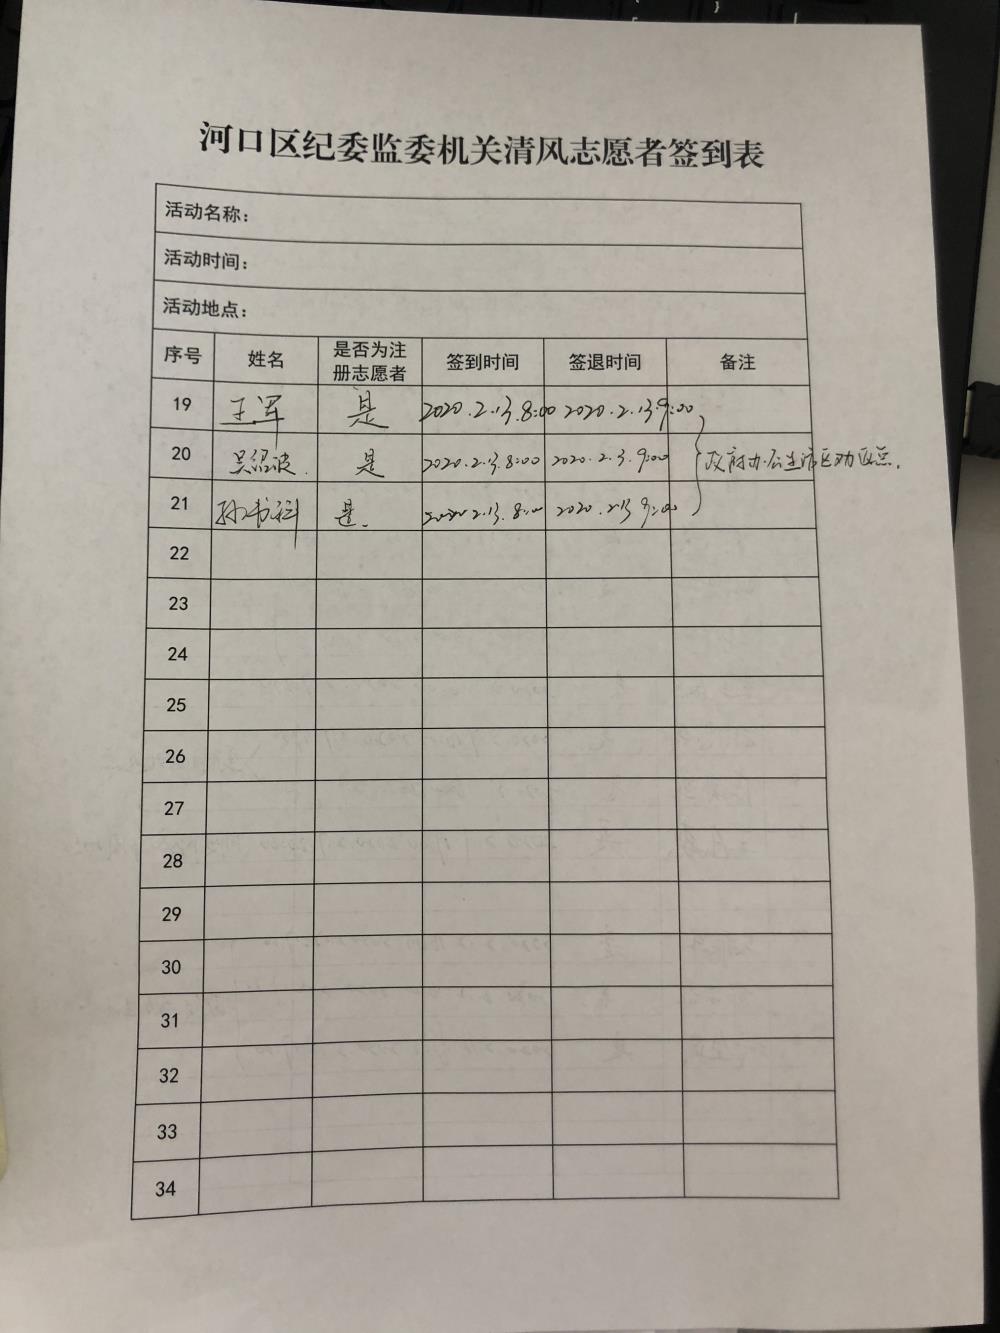 河口区纪委监委机关清风志愿者签到表
活动名称：
活动时间：
活动地点：
序号 姓名 是否为注册志愿者 签到时间 签退时间 备注
19 王军 是 2020.2.13.8:00 2020.2.13.9:00
20 吴绍波. 是 2020.2.13.8:00 2020.2.13.9:00 政府办公生活区劝返点.
21 孙书科 是. 2020.2.13.8:00 2020.2.13 9:00
22
23
24
25
26
27
28
29
30
31
32
33
34